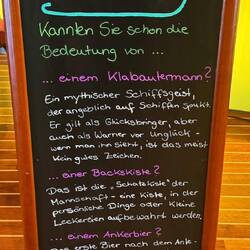 Kannten Sie schon die
Bedeutung von ...
... einem Klabautermann?
Ein mythischer Schiffsgeist,
der angeblich auf Schiffen spukt.
Er gilt als Glücksbringer, aber
auch als Warner vor Unglück -
wenn man ihn sieht, ist das meist
kein gutes Zeichen.
... einer Backskiste?
Das ist die "Schatzkiste" der
Mannschaft - eine Kiste, in der
persönliche Dinge oder kleine
Leckereien aufbewahrt werden.
... einem Ankerbier?
Das erste Bier nach dem